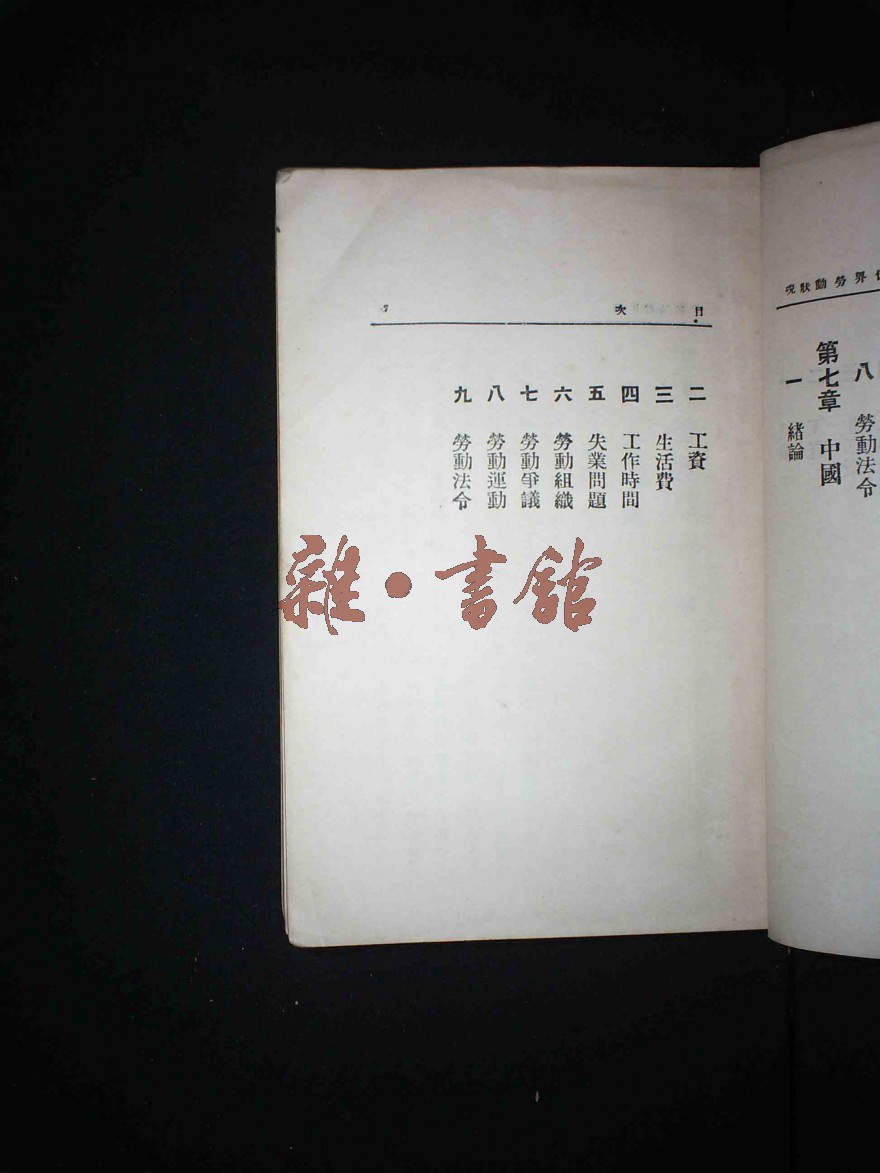 世界勞動狀況
八 勞動法令
第七章 中國
一 緒論
目次 7
二 工資
三 生活費
四 工作時間
五 失業問題
六 勞動組織
七 勞動爭議
八 勞動運動
九 勞動法令
雜·書館